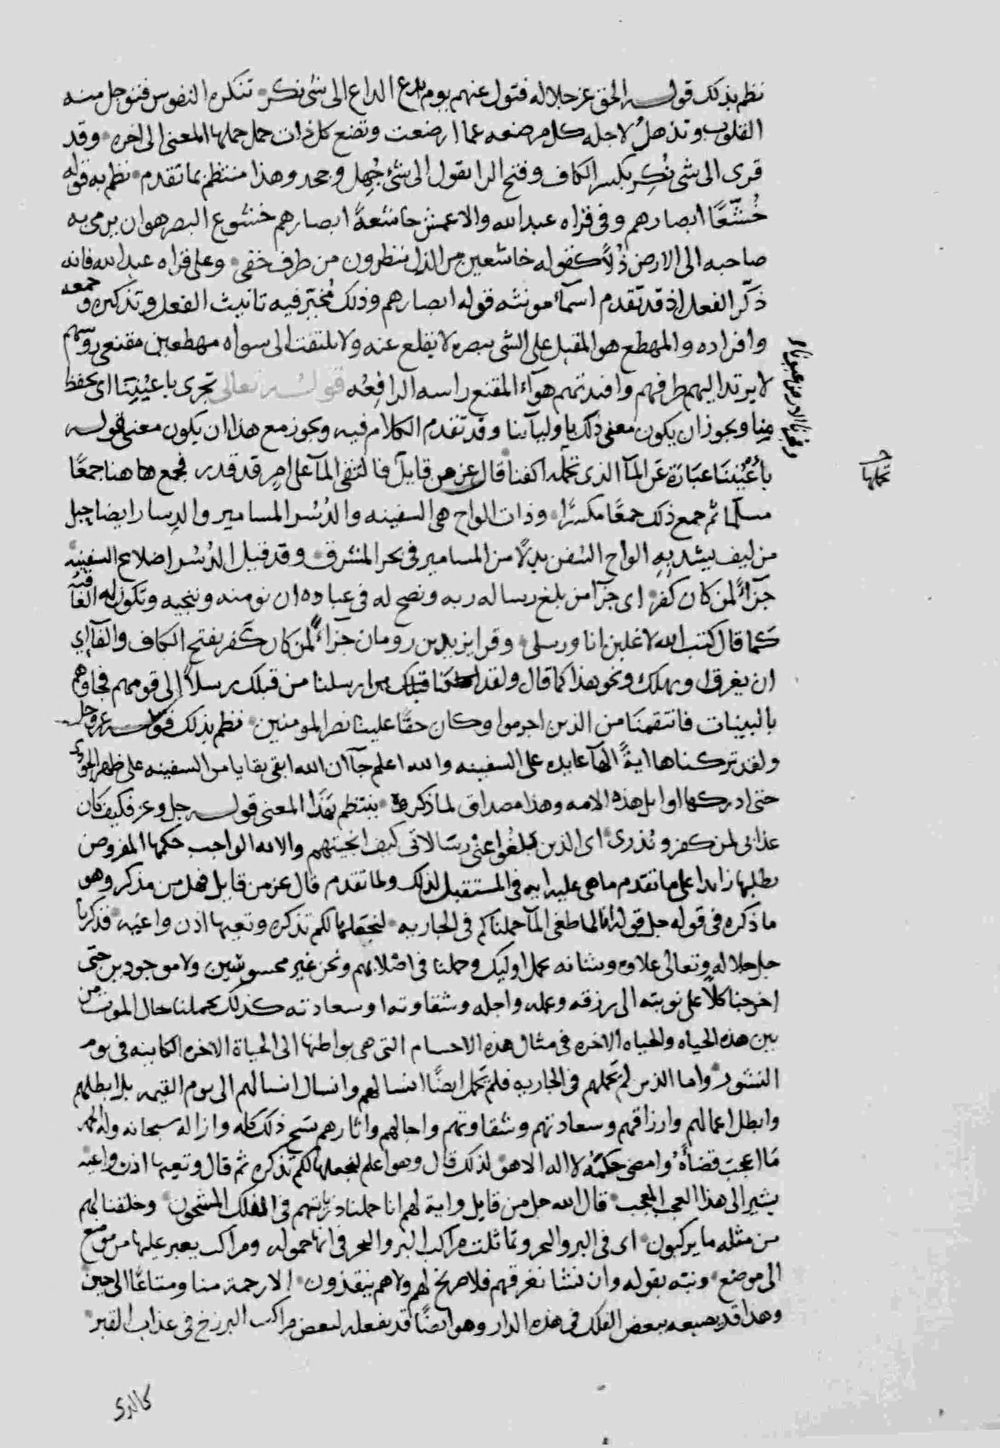 نظم بذلك قوله الحق عز جلاله فتول عنهم يوم يدع الداع الى شى نكر تنكره النفوس فتوجل منه
القلوب وتذهل لاجله كل مرضعه عما ارضعت وتضع كل ذات حمل حملها المعنى الى اخره وقد
قرى الى شى نُكِر بكسر الكاف وفتح الرا يقول الى شئ جُهِل وجحد وهذا منتظم بما تقدم نظم به قوله
خُشَّعًا ابصارهم وفى قراه عبدالله والاعمش خاشعةً ابصارهم خشوع البصر هو ان يرمى به
صاحبه الى الارض ذُلّا كقوله خاشعين من الذل ينظرون من طرف خفى وعلى قراه عبدالله فانه
ذكّر الفعل اذ قد تقدم اسمآء مونثه قوله ابصارهم وذلك مخيّر فيه تانيث الفعل وتذكيره وجمعه
وافراده والمهطع هو المقبل على الشى ببصره لا يقلع عنه ولا يلتفت الى سواه مهطعين مقنعى روسهم
لا يرتد اليهم طرفهم وافيدتهم هوآء المقنع راسه الرافعه قوله تعالى تجرى باعيُنِنَا اى بحفظ
مِنا ويجوز ان يكون معنى ذلك باوليآئنا وقد تقدم الكلام فيه ويجوز مع هذا ان يكون معنى قوله
بأعيُننَا عبارَة عَن المآ الذى تحمله اكفنا قال عز من قايل فالتقى المآ على امر قد قدر فجمع هاهنا جمعًا
مسلّما ثم جمع ذلك جمعًا مكسّرًا وذات الواح هى السفينه والدُسُر المسامير والدسار ايضا حبل
من ليف يشد به الواح السُفن بدلًا من المسامير فى بحر المشرق وقد قيل الدسُر اضلاع السفينه
جزآءً لمن كان كُفر اى جزآ من بلغ رساله ربه ونصح له فى عباده ان نومنه وننجيه وتكون له العاقبه
كما قال كتب الله لاغلبن انا ورسلى وقرا يزيد بن رومان جزآءً لمن كان كَفَر بفتح الكاف والفآ اى
ان يغرق ويهلك ونحو هذا كما قال ولقد ارسلنا من قبلك رسلًا إلى قومهم فجاوهم
بالبينات فانتقمنا من الذين اجرموا وكان حقًا علينا نصر المومنين نظم بذلك قوله عز وجل
ولقد تركناها ايةً الهآ عايده على السفينه والله اعلم جآ ان الله ابقى بقايا من السفينه على ظهر الجودى
حتى ادركها اوايل هذه الامه وهذا مصداق لما ذكره ينتظم بهَذا المعنى قوله جل وعز فكيف كان
عذابى لمن كفر ونذرى اى الذين بلغوا عنى رسَالاتى كيف انجيتهم والايه الواجب حكمها المفروض
بطلبها زايدا على ما تقدم ما هى عليه ايه فى المستقبل لذلك ولما تقدم قال عز من قايل فهل من مذكر وهو
ما ذكره فى قوله جل قوله انا لما طغى المآ حملناكم فى الجاريه لنجعلها لكم تذكره وتعيها اذن واعيه فذكرنا
جل جلاله وتعالى علاوه وشانه بحمل اوليك وحملنا فى اصلابهم ونحن غير محسوسين ولا موجودين حتى
اخرجنا كلًا على نوبته الى رزقه وعمله واجله وشقاوته او سعادته كذلك يحملنا حال الموت من
بين هذه الحياه والحياه الاخره فى مثال هذه الاجسام التى هى بواطنها الى الحياة الاخره الكاينه فى يوم
النشور واما الذين لم يحملهم فى الجاريه فلم يحمل ايضًا انسالهم وانسال انسالهم الى يوم القيمه بل ابطلهم
وابطل اعمالهم وارزاقهم وسعادتهم وشقاوتهم واجالهم واثارهم نسخ ذلك كله وازاله سبحانه وله الحمد
مَا اعجب قضآءَه وامضى حكمَهُ لا اله الا هو لذلك قال وهو اعلم لنجعلها لكم تذكره ثم قال وتعيها اذن واعيه
يشير الى هذا العجب العجب قال الله جل من قايل واية لهم انا حملنا ذرياتهم فى الفلك المشحون وخلقنا لهم
من مثله ما يركبون اى فى البر والبحر وتماثلت مراكب البر والبحر فى انها حموله ومراكب يعبر عليها من موضع
الى موضع ونبّه بقوله وان نشا نغرقهم فلا صريخ لهم ولا هم ينقذون الا رحمة منا ومتاعًا الى حين
وهذا قد يصيبه ببعض الفلك فى هذه الدار وهو ايضًا قد يفعله لبعض مراكب البرزخ فى عذاب القبر
كالذى